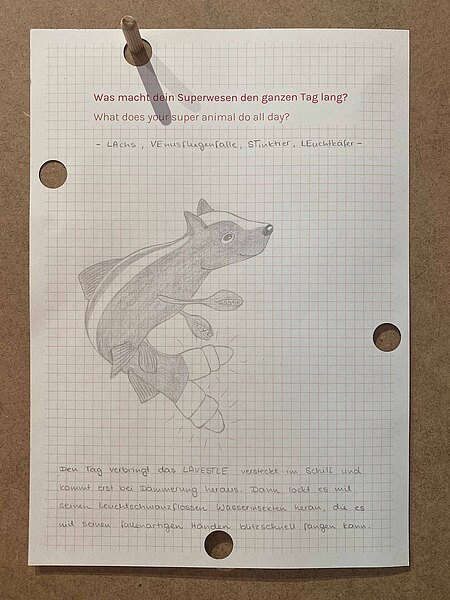 Was macht dein Superwesen den ganzen Tag lang?
What does your super animal do all day?
- LAchs, VEnusfliegenfalle, STinktier, LEuchtkäfer -
Den Tag verbringt das LAVESTLE versteckt im Schilf und
kommt erst bei Dämmerung heraus. Dann lockt es mit
seinen Leuchtschwanzflossen Wasserinsekten heran, die es
mit seinen fallenartigen Händen blitzschnell fangen kann.